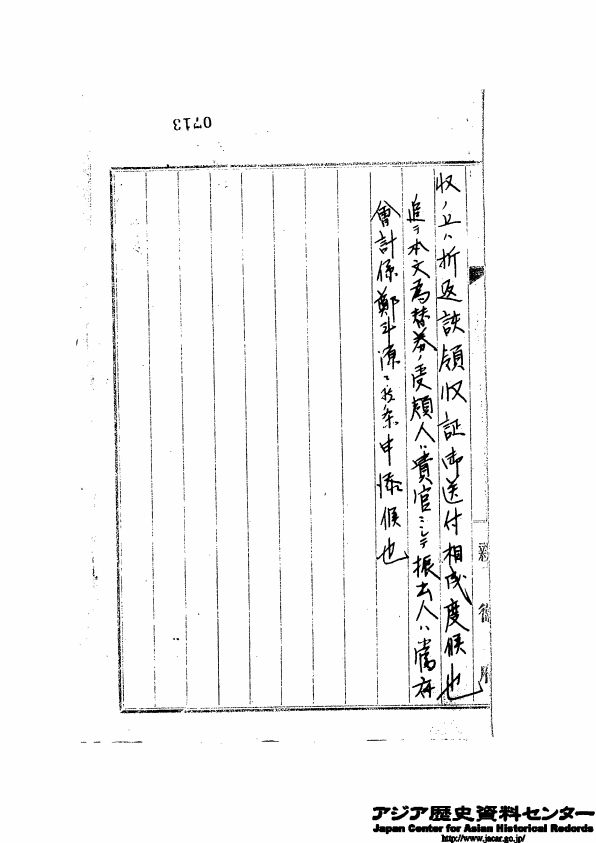 0713
収ノ上ハ折返該領収証御送付相成度候也
追テ本文為替券ノ受領人ハ貴官ニシテ振出人ハ當府
會計係鄭斗源ニ候条申添候也
アジア歴史資料センター
Japan Center for Asian Historical Records
http://www.jacar.go.jp/